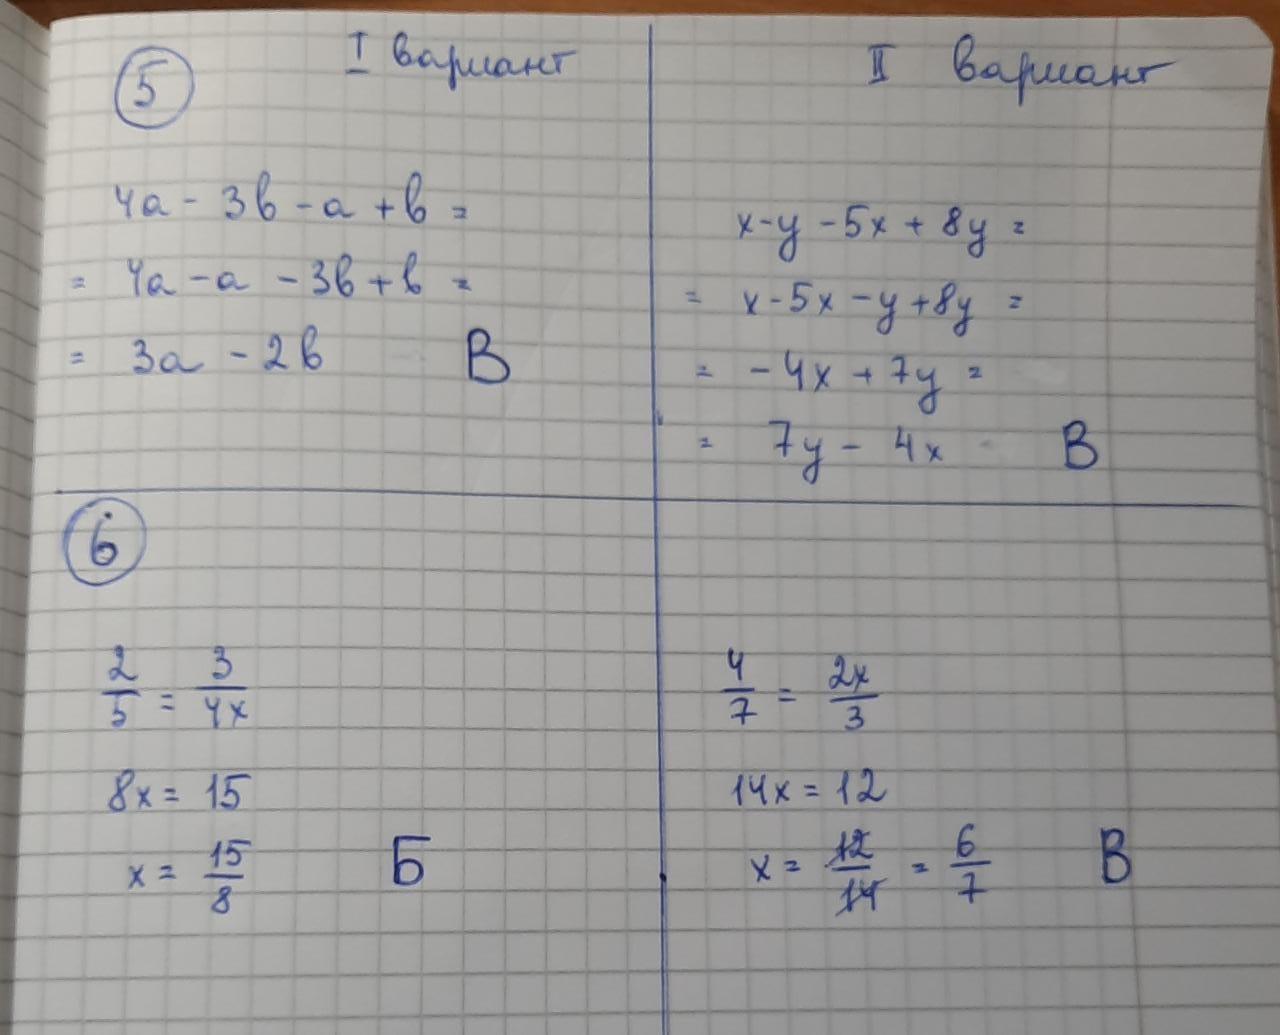 5
I вариант
4a - 3b - a + b =
= 4a - a - 3b + b =
= 3a - 2b В
II вариант
x - y - 5x + 8y =
= x - 5x - y + 8y =
= - 4x + 7y =
= 7y - 4x В
6
2/5 = 3/4x
8x = 15
x = 15/8 Б
4/7 = 2x/3
14x = 12
x = 12/14 = 6/7 В